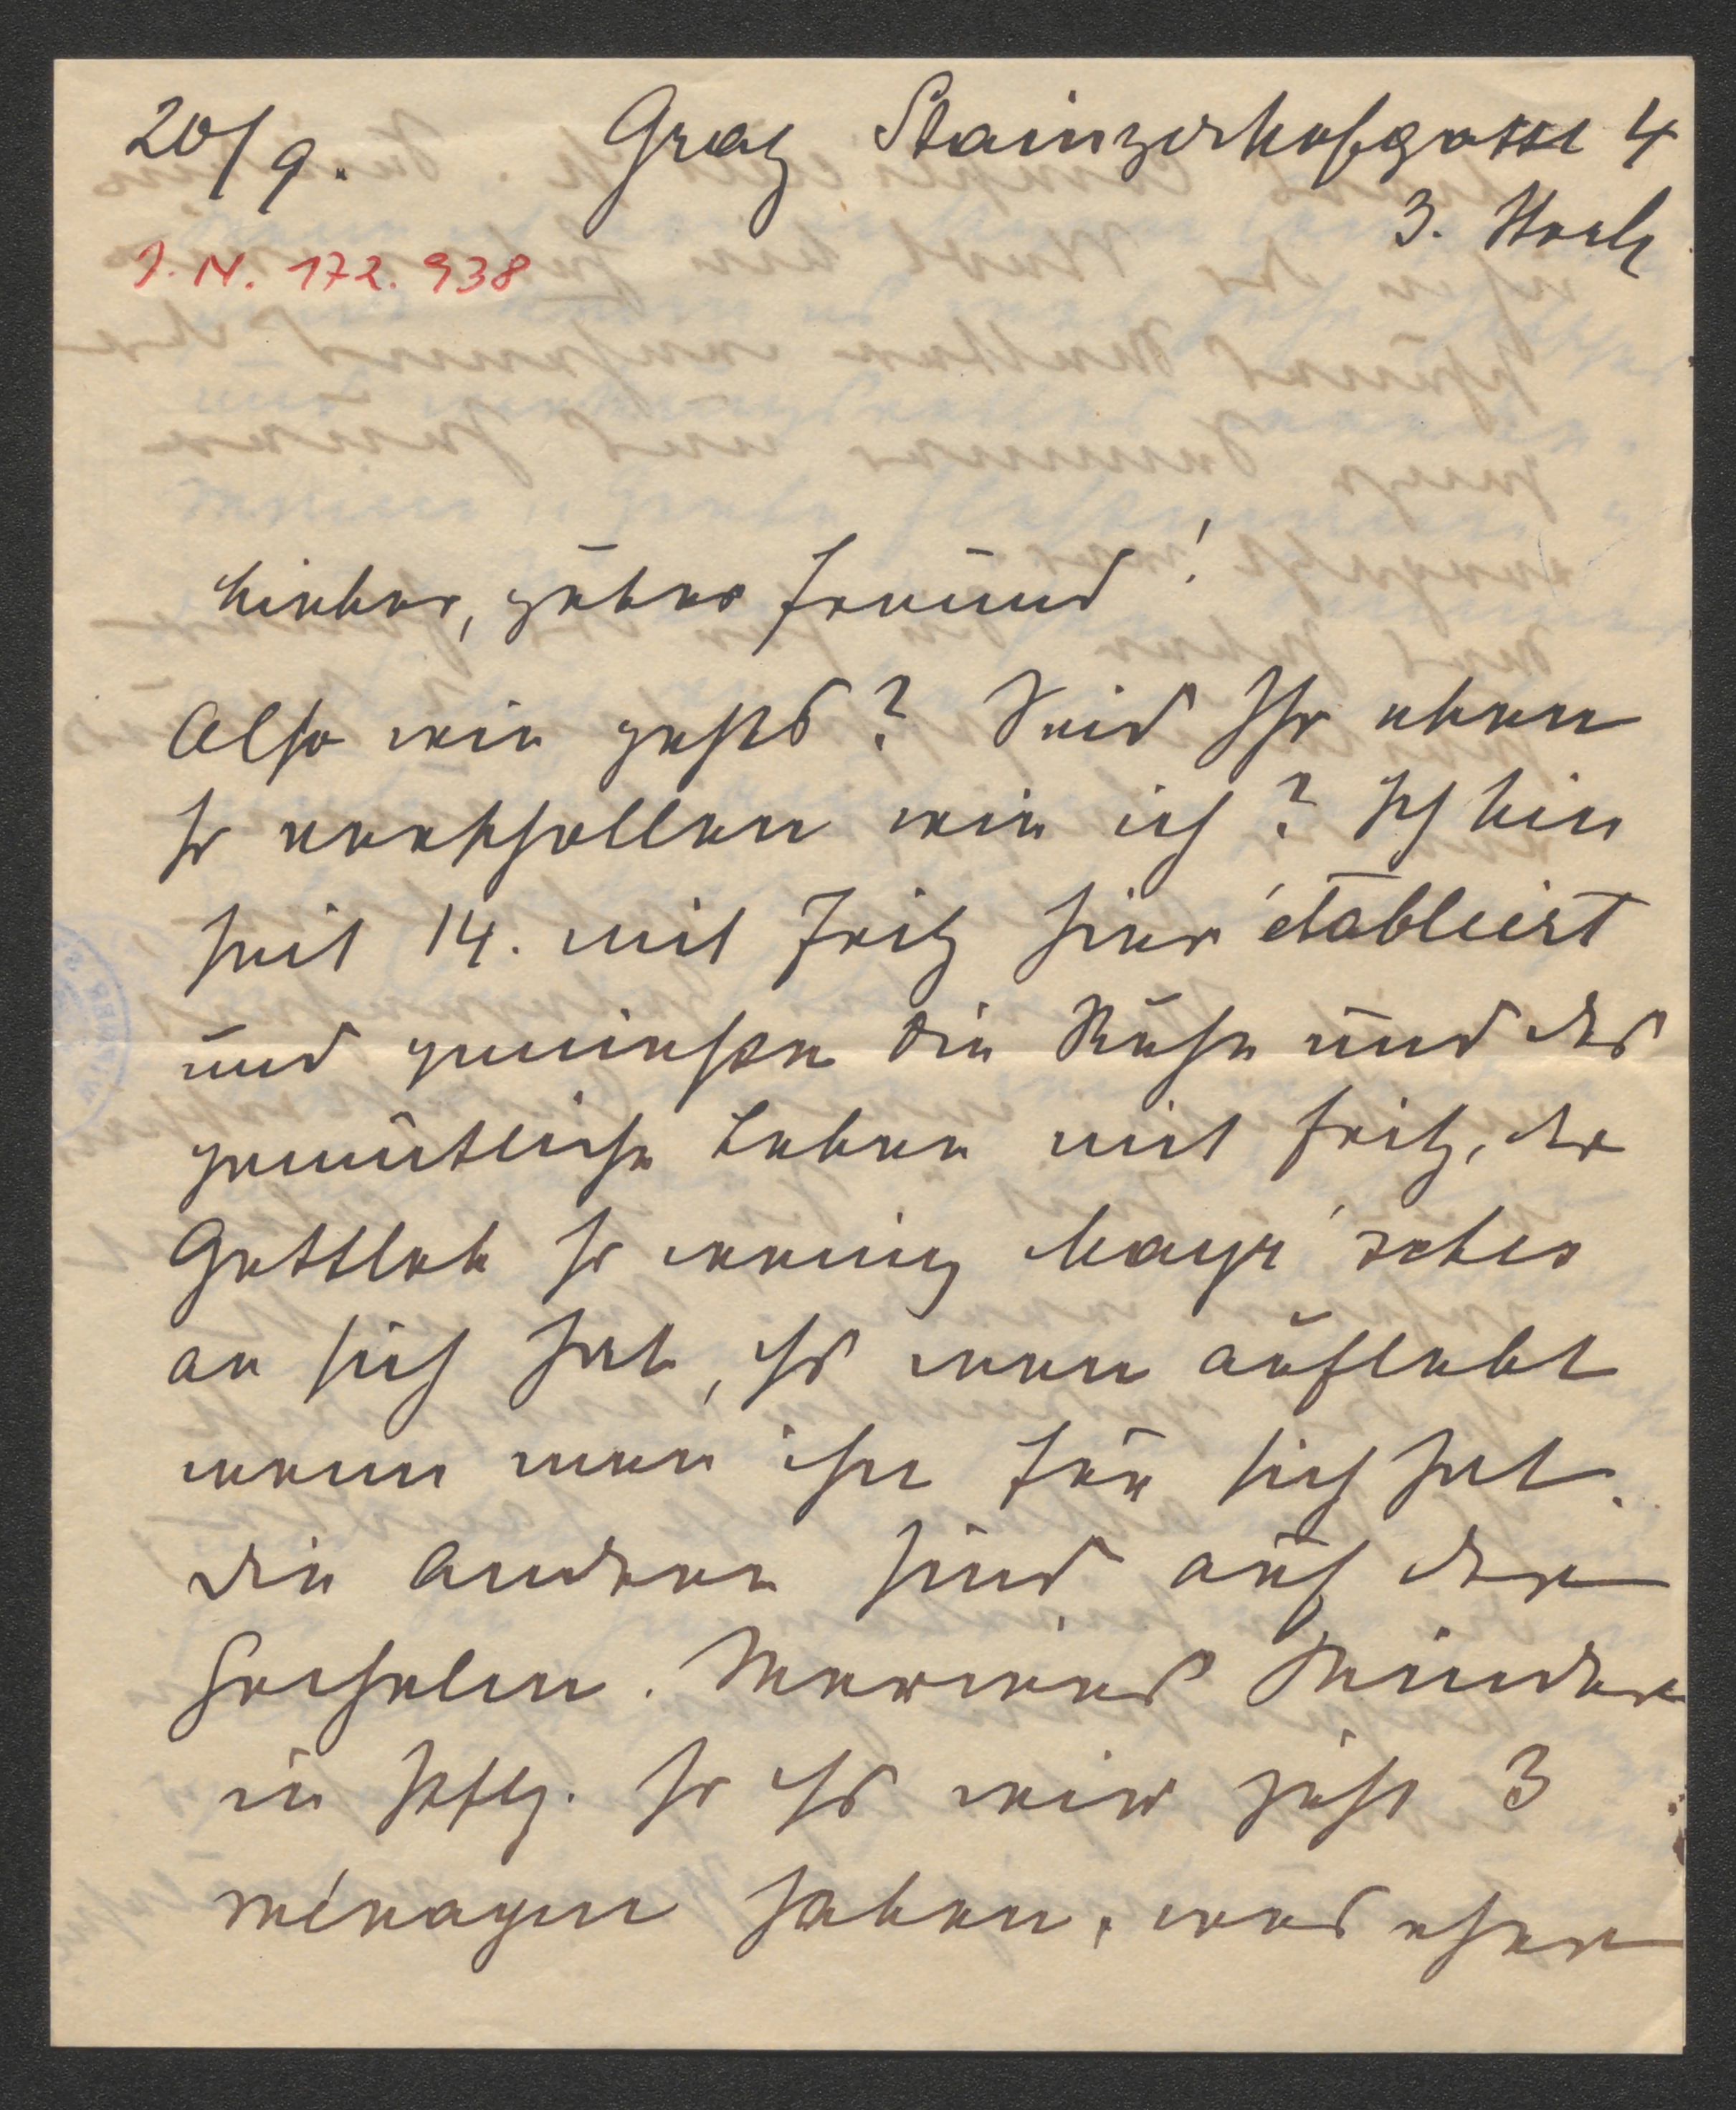 20/9. Graz Stainzerhofgasse 4
3. Stock
I.N. 172.938
Lieber, guter Freund!
Also wie gehts? Seid Ihr eben
so verschollen wie ich? Ich bin
seit 14. mit Fritz hier établiert
und geniesse die Ruhe und das
gemütliche Leben mit Fritz, der
Gottlob so wenig Mayr'sches
an sich hat, dß man auflebt
wenn man ihn für sich hat.
Die Anderen sind auf der
. Mariens Kinder
in . So dß wir jetzt 3
ménagen haben, was eher